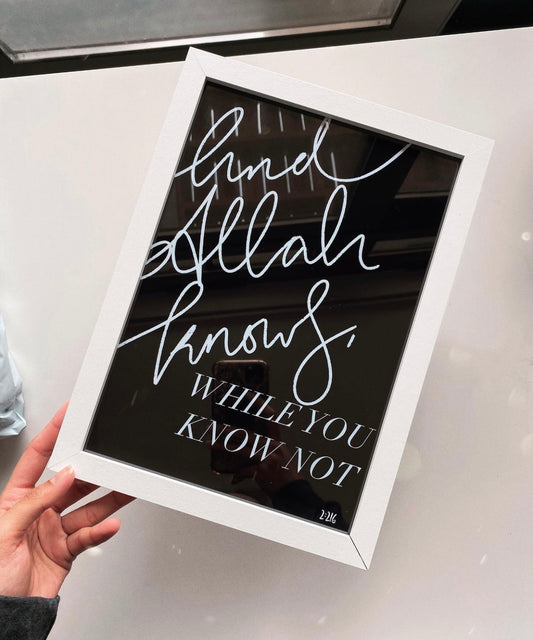 and
Allah
knows,
WHILE YOU
KNOW NOT
2:216